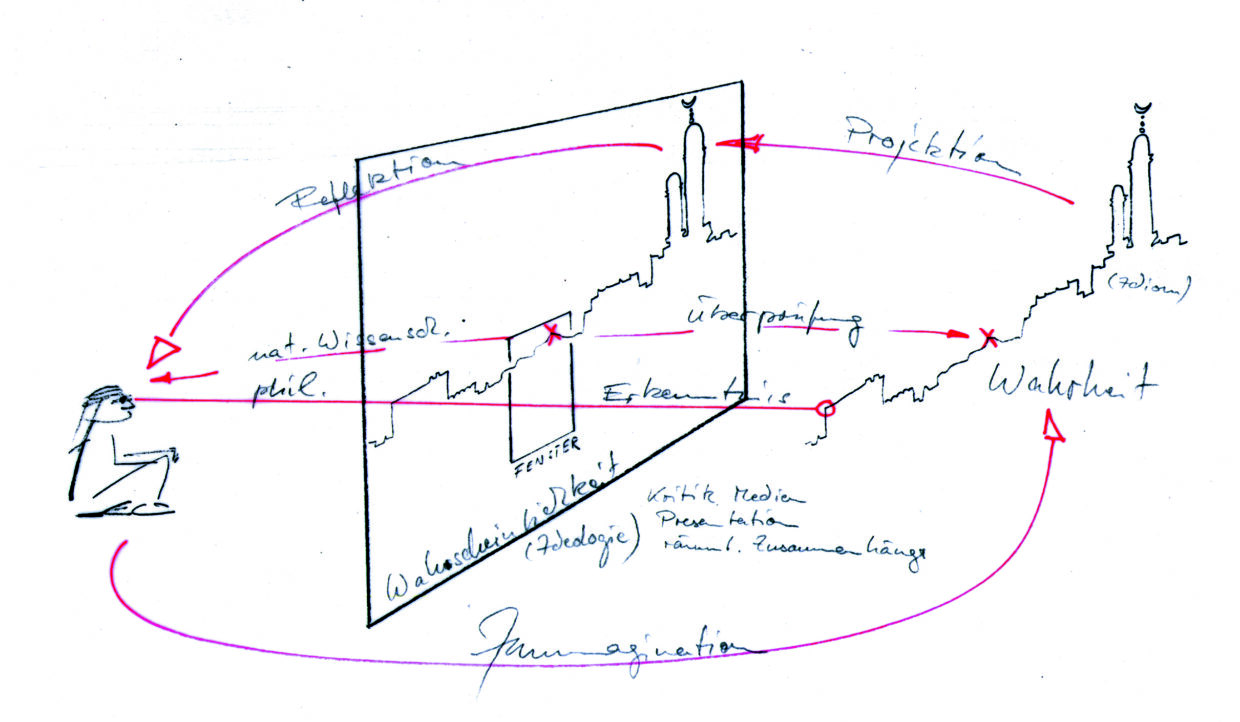 Projektion
Reflektion
(Idiom)
Überprüfung
nat. Wissensch.
phil.
Wahrheit
Erkenntnis
FENSTER
Wahrscheinlichkeit
(Ideologie)
Kritik Medien
Presentation
räuml. Zusammenhänge
Immagination